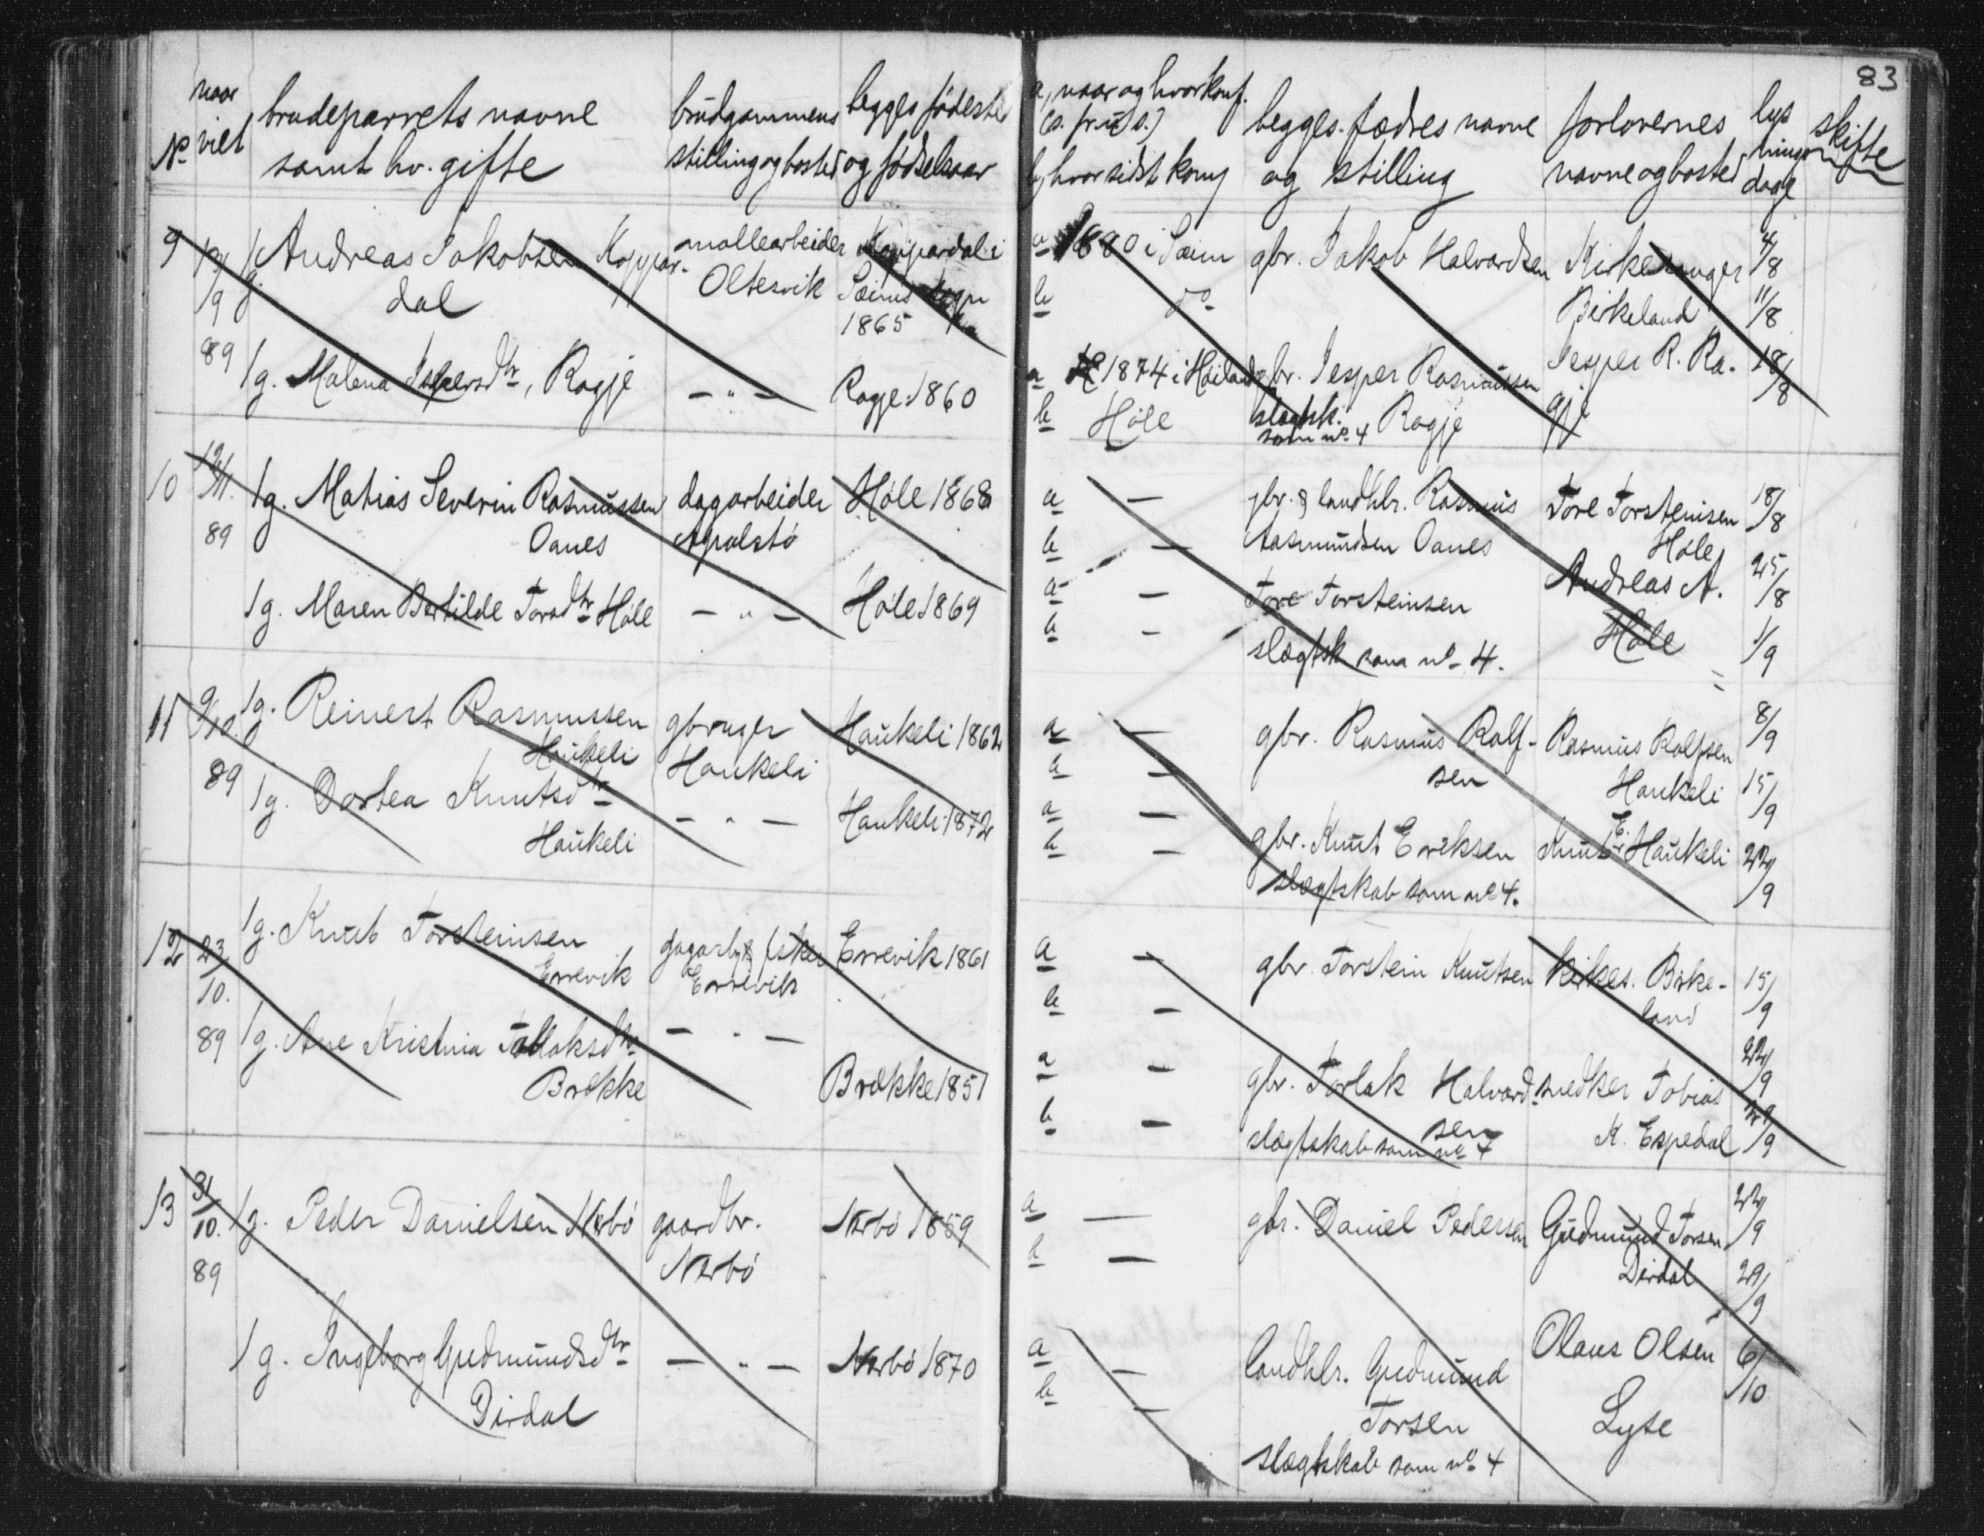 83
No
naar viet
brudeparrets navne
samt hv. gifte
brudgommens
stilling og bosted
begges fødested
og fødselsaar
a, naar og hvor konf.
b, hvor sidst komm
begges fædres navne
og stilling
forlovernes
navne og bosted
lysningsdage
skifte
9
19/9 89
1g. Andreas Jakobsen Koppar-
dal
mollearbeider
Oltesvik
Koppardal i
1865
a 1880 i
b do
gbr. Jakob Halvardsen
Kirkesanger
Birkeland
4/8
11/8
18/8
1g. Malena Jespersdtr, Ragje
— " —
Ragje 1860
a 1874 i Høiland
b Høle
gbr. Jesper Rasmussen
slægtsk. Ragje
som no 4
Jesper R. Ra-
gje
10
12/11. 89
1g. Matias Severin Rasmussen
Oanes
dagarbeider
Apalstø
Høle 1868
a —
b —
gbr. & landhbr. Rasmus
Aasmundsen Oanes
Tore Torsteinsen
Høle
18/8
25/8
1/9
1g. Maren Bertilde Torsdtr Høle
— " —
Høle 1869
a —
b —
Tore Torsteinsen
slægtsk som no 4.
Andreas A.
Høle
11
9/10. 89
1g. Reinert Rasmussen
Haukeli
gbruger
Haukeli
Haukeli 1862
a —
b —
gbr. Rasmus Rolf-
sen
Rasmus Rolfsen
Haukeli
8/9
15/9
22/9
1g. Dortea Knutsdtr
Haukeli
— " —
Haukeli 1872
a —
b —
gbr. Knut Eriksen
slægtskab som no 4.
Knut E. Haukeli
12
23/10. 89
1g. Knut Torsteinsen
Errevik
dagarb. & fisker
Errevik
Errevik 1861
a —
b —
gbr. Torstein Knutsen
Kirkes. Birke-
land
15/9
22/9
29/9
1g. Ane Kristina Tollaksdtr
Brekke
— " —
Brekke 1851
a —
b —
gbr. Torlak Halvard-
sen
slægtskab som no 4
snedker Tobias
K. Espedal
13
31/10. 89
1g. Peder Danielsen Nerbø
gaardbr.
Nerbø
Nerbø 1859
a —
b —
gbr. Daniel Pedersen
Gudmund Torsen
Dirdal
22/9
29/9
6/10
1g. Ingeborg Gudmundsdtr
Dirdal
— " —
Nerbø 1870
a —
b —
landhbr. Gudmund
Torsen
slægtskab som no 4
Olaus Olsen
Lyse